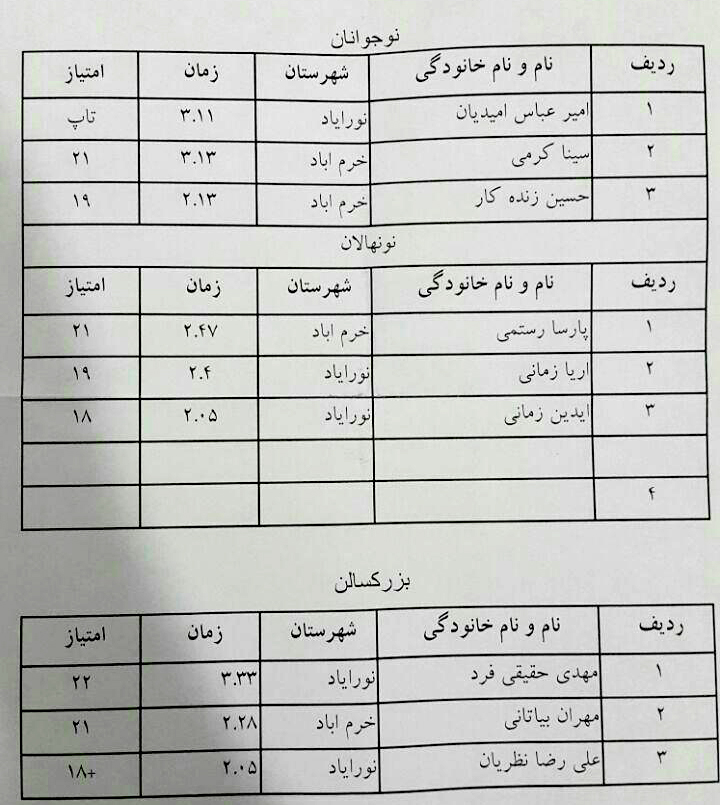 نوجوانان
ردیف نام و نام خانودگی شهرستان زمان امتیاز
۱ امیر عباس امیدیان نورایاد ۳.۱۱ تاپ
۲ سینا کرمی خرم اباد ۳.۱۳ ۲۱
۳ حسین زنده کار خرم اباد ۲.۱۳ ۱۹
نونهالان
ردیف نام و نام خانودگی شهرستان زمان امتیاز
۱ پارسا رستمی خرم اباد ۲.۴۷ ۲۱
۲ اریا زمانی نورایاد ۲.۴ ۱۹
۳ ایدین زمانی نورایاد ۲.۰۵ ۱۸
۴
بزرکسالن
ردیف نام و نام خانودگی شهرستان زمان امتیاز
۱ مهدی حقیقی فرد نورایاد ۳.۳۳ ۲۲
۲ مهران بیاتانی خرم اباد ۲.۲۸ ۲۱
۳ علی رضا نظریان نورایاد ۲.۰۵ +۱۸